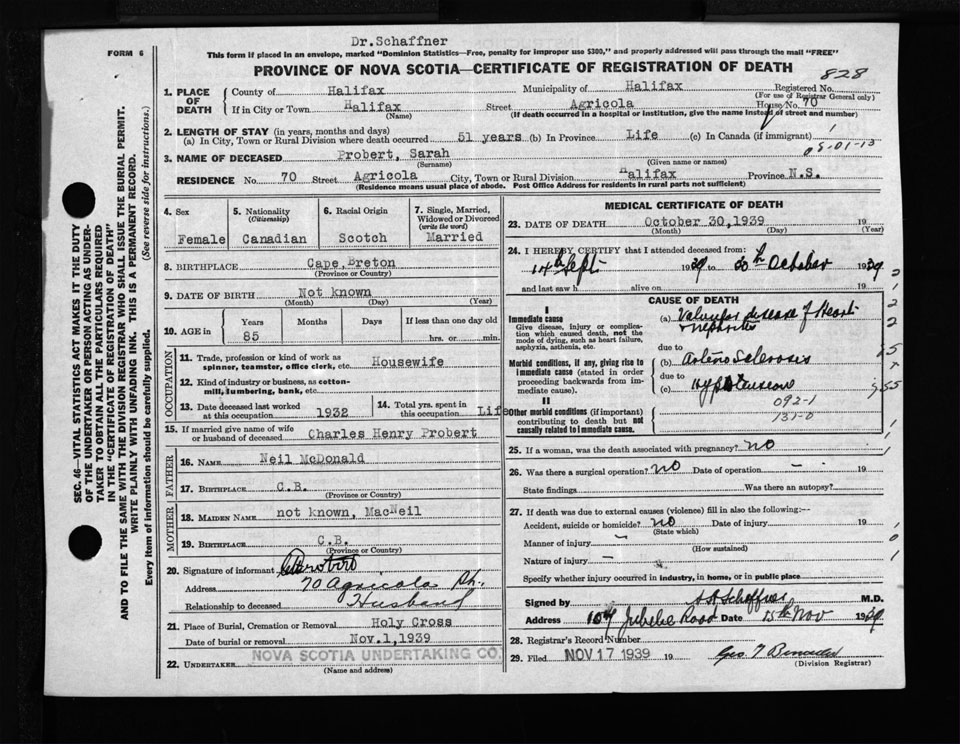 Dr.Schaffner
FORM 6
This form if placed in an envelope, marked "Dominion Statistics—Free, penalty for improper use $300," and properly addressed will pass through the mail "FREE"
PROVINCE OF NOVA SCOTIA—CERTIFICATE OF REGISTRATION OF DEATH
828
SEC. 46—VITAL STATISTICS ACT MAKES IT THE DUTY
OF THE UNDERTAKER OR PERSON ACTING AS UNDER-
TAKER TO OBTAIN ALL THE PARTICULARS REQUIRED
IN THE "CERTIFICATE OF REGISTRATION OF DEATH"
AND TO FILE THE SAME WITH THE DIVISION REGISTRAR WHO SHALL ISSUE THE BURIAL PERMIT.
WRITE PLAINLY WITH UNFADING INK. THIS IS A PERMANENT RECORD.
Every item of information should be carefully supplied. (See reverse side for instructions.)
1. PLACE OF DEATH
County of Halifax Municipality of Halifax Registered No.
(For use of Registrar General only)
If in City or Town Halifax Street Agricola House No. 70
(Name) (If death occurred in a hospital or institution, give the name instead of street and number)
2. LENGTH OF STAY (in years, months and days)
(a) In City, Town or Rural Division where death occurred 51 years (b) In Province Life (c) In Canada (if immigrant)
05-01-13
3. NAME OF DECEASED Probert, Sarah
(Surname) (Given name or names)
RESIDENCE No. 70 Street Agricola City, Town or Rural Division Halifax Province N.S.
(Residence means usual place of abode. Post Office Address for residents in rural parts not sufficient)
4. Sex Female
5. Nationality (Citizenship) Canadian
6. Racial Origin Scotch
7. Single, Married, Widowed or Divorced (write the word) Married
8. BIRTHPLACE Cape Breton
(Province or Country)
9. DATE OF BIRTH Not known
(Month) (Day) (Year)
10. AGE in Years Months Days If less than one day old
85 hrs. or min.
OCCUPATION
11. Trade, profession or kind of work as
spinner, teamster, office clerk, etc. Housewife
12. Kind of industry or business, as cotton-
mill, lumbering, bank, etc.
13. Date deceased last worked
at this occupation 1932
14. Total yrs. spent in
this occupation Lif
15. If married give name of wife
or husband of deceased Charles Henry Probert
FATHER
16. NAME Neil McDonald
17. BIRTHPLACE C.B.
(Province or Country)
MOTHER
18. MAIDEN NAME not known, MacNeil
19. BIRTHPLACE C.B.
(Province or Country)
20. Signature of informant
Address 70 Agricola St.,
Relationship to deceased Husband
21. Place of Burial, Cremation or Removal Holy Cross
Date of burial or removal Nov.1,1939
22. UNDERTAKER NOVA SCOTIA UNDERTAKING CO.
(Name and address)
MEDICAL CERTIFICATE OF DEATH
23. DATE OF DEATH October 30,1939 19
(Month) (Day) (Year)
24. I HEREBY CERTIFY that I attended deceased from:
14th Sept 1939 to 30th October 1939
and last saw h alive on 19
CAUSE OF DEATH
I
Immediate cause
Give disease, injury or complica-
tion which caused death, not the
mode of dying, such as heart failure,
asphyxia, asthenia, etc.
(a) Valvular disease of Heart
Nephritis
due to
Morbid conditions, if any, giving rise to
immediate cause (stated in order
proceeding backwards from im-
mediate cause).
(b) Arterio Sclerosis
due to
(c) Hypertension
II
Other morbid conditions (if important)
contributing to death but not
causally related to immediate cause.
092-1
131-0
25. If a woman, was the death associated with pregnancy? no
26. Was there a surgical operation? no Date of operation - 19
State findings Was there an autopsy?
27. If death was due to external causes (violence) fill in also the following:—
Accident, suicide or homicide? no Date of injury 19
(State which)
Manner of injury
(How sustained)
Nature of injury
Specify whether injury occurred in industry, in home, or in public place
Signed by A A Schaffner M.D.
Address 104 Jubilee Road Date 15th Nov 1939
28. Registrar's Record Number
29. Filed NOV 17 1939 19
(Division Registrar)